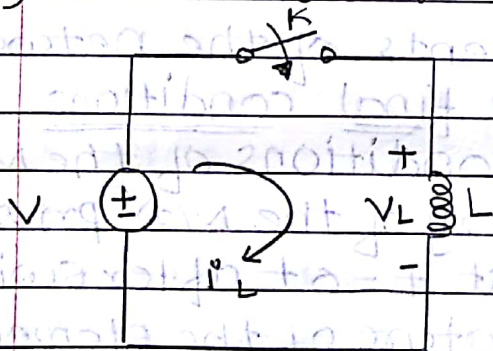 K
+
V
±
V_L
L
i_L
-